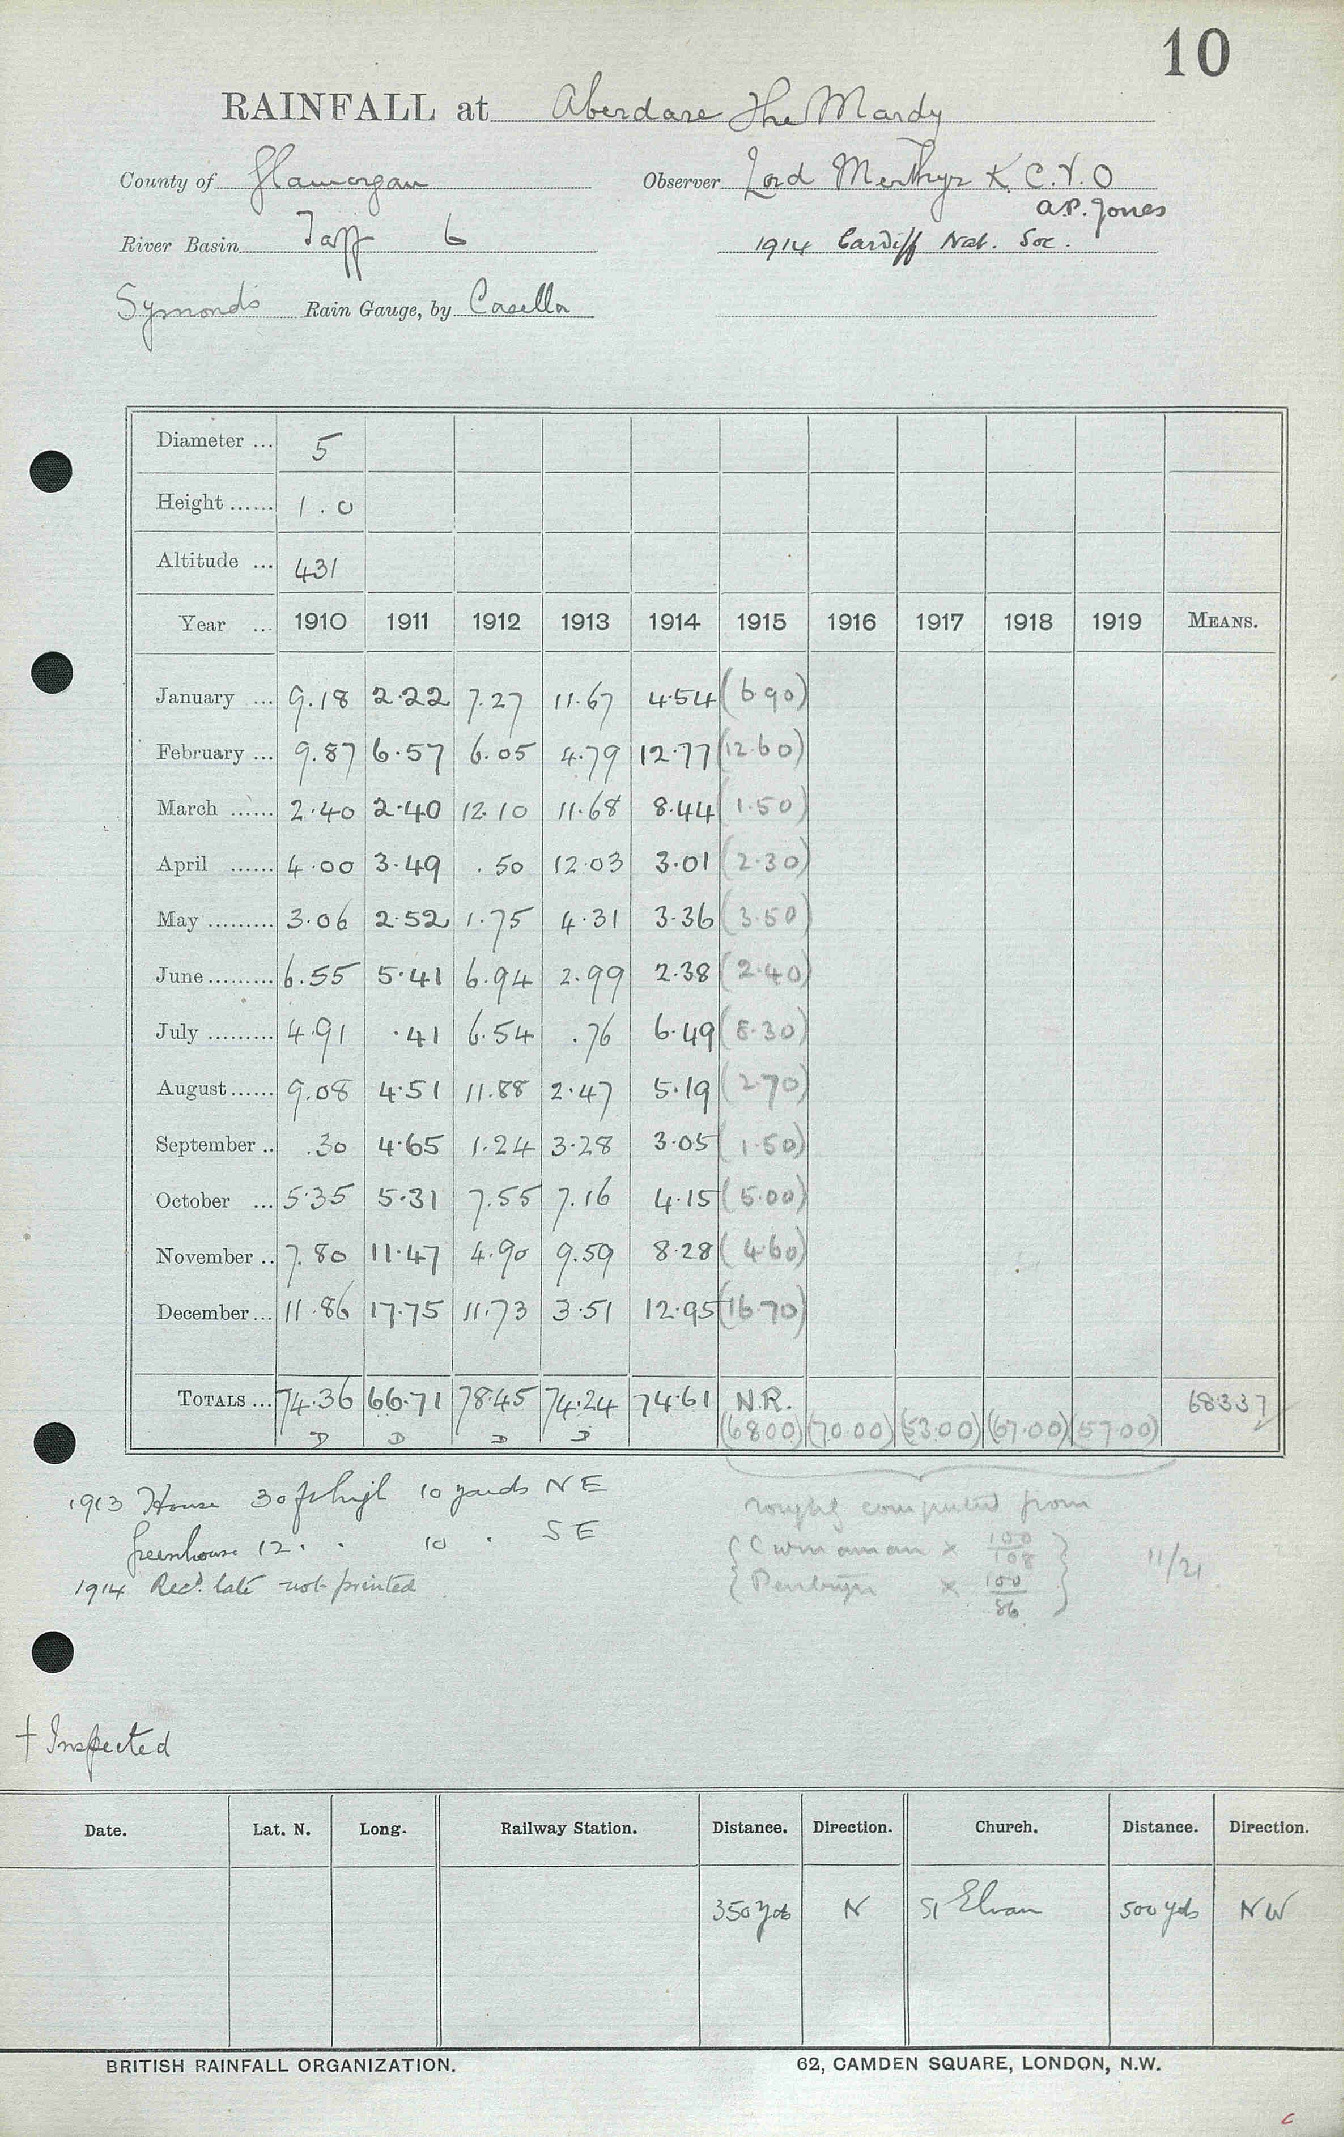 10
RAINFALL at Aberdare The Mardy
County of Glamorgan Observer Lord Merthyr K.C.V.O
A.P. Jones
River Basin Taff 6 1914 Cardiff Nat. Soc.
Symonds Rain Gauge, by Casella
Diameter ... 5
Height ...... 1.0
Altitude ... 431
Year ... 1910 1911 1912 1913 1914 1915 1916 1917 1918 1919 MEANS.
January ... 9.18 2.22 7.27 11.67 4.54 (6.90)
February ... 9.87 6.57 6.05 4.79 12.77 (12.60)
March ...... 2.40 2.40 12.10 11.68 8.44 (1.50)
April ...... 4.00 3.49 .50 12.03 3.01 (2.30)
May ......... 3.06 2.52 1.75 4.31 3.36 (3.50)
June ......... 6.55 5.41 6.94 2.99 2.38 (2.40)
July ......... 4.91 .41 6.54 .76 6.49 (8.30)
August ...... 9.08 4.51 11.88 2.47 5.19 (2.70)
September .. .30 4.65 1.24 3.28 3.05 (1.50)
October ... 5.35 5.31 7.55 7.16 4.15 (5.00)
November .. 7.80 11.47 4.90 9.59 8.28 (4.60)
December ... 11.86 17.75 11.73 3.51 12.95 (16.70)
TOTALS ... 74.36 66.71 78.45 74.24 74.61 N.R. 68.337
D D D D (68.00) (70.00) (53.00) (67.00) (57.00)
1913 House 30 ft high 10 yards NE
Greenhouse 12 . . 10 . SE
1914 Recd. late not printed
roughly computed from
{Cwmaman × 100/108}
{Penbryn × 100/86}
11/21
† Inspected
Date. Lat. N. Long. Railway Station. Distance. Direction. Church. Distance. Direction.
350 yds N St Elvan 500 yds NW
BRITISH RAINFALL ORGANIZATION. 62, CAMDEN SQUARE, LONDON, N.W.
c